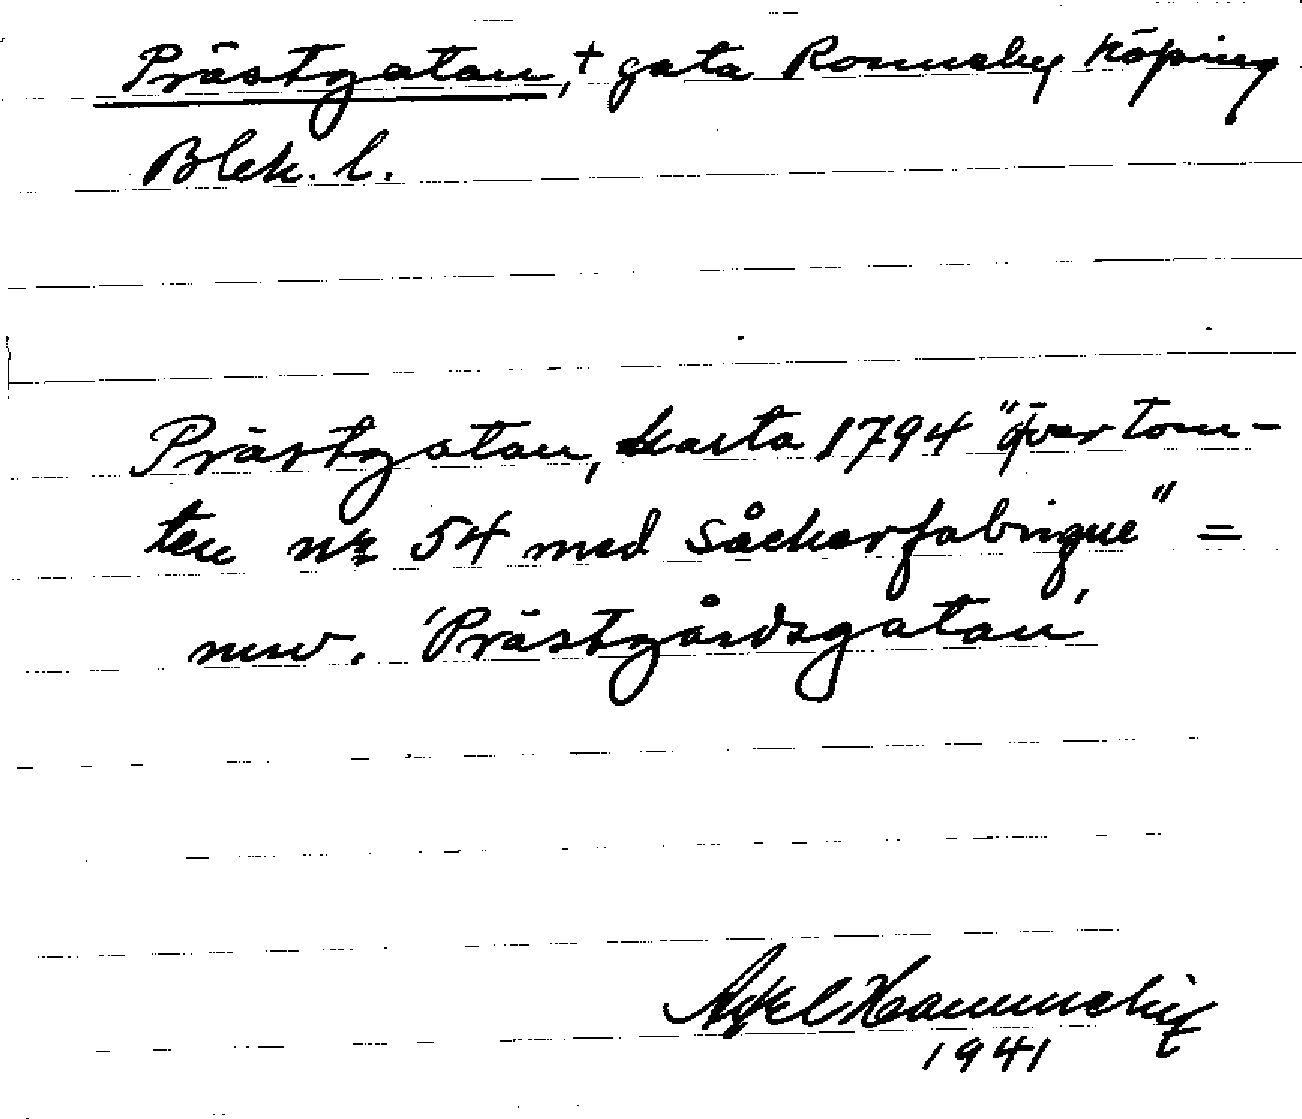 Prästgatan, + gata Ronneby köping
Blek. l.
Prästgatan, karta 1794 "över tom-
ten nr 54 med Såckerfabrique" =
nuv. 'Prästgårdsgatan'
Axel
1941